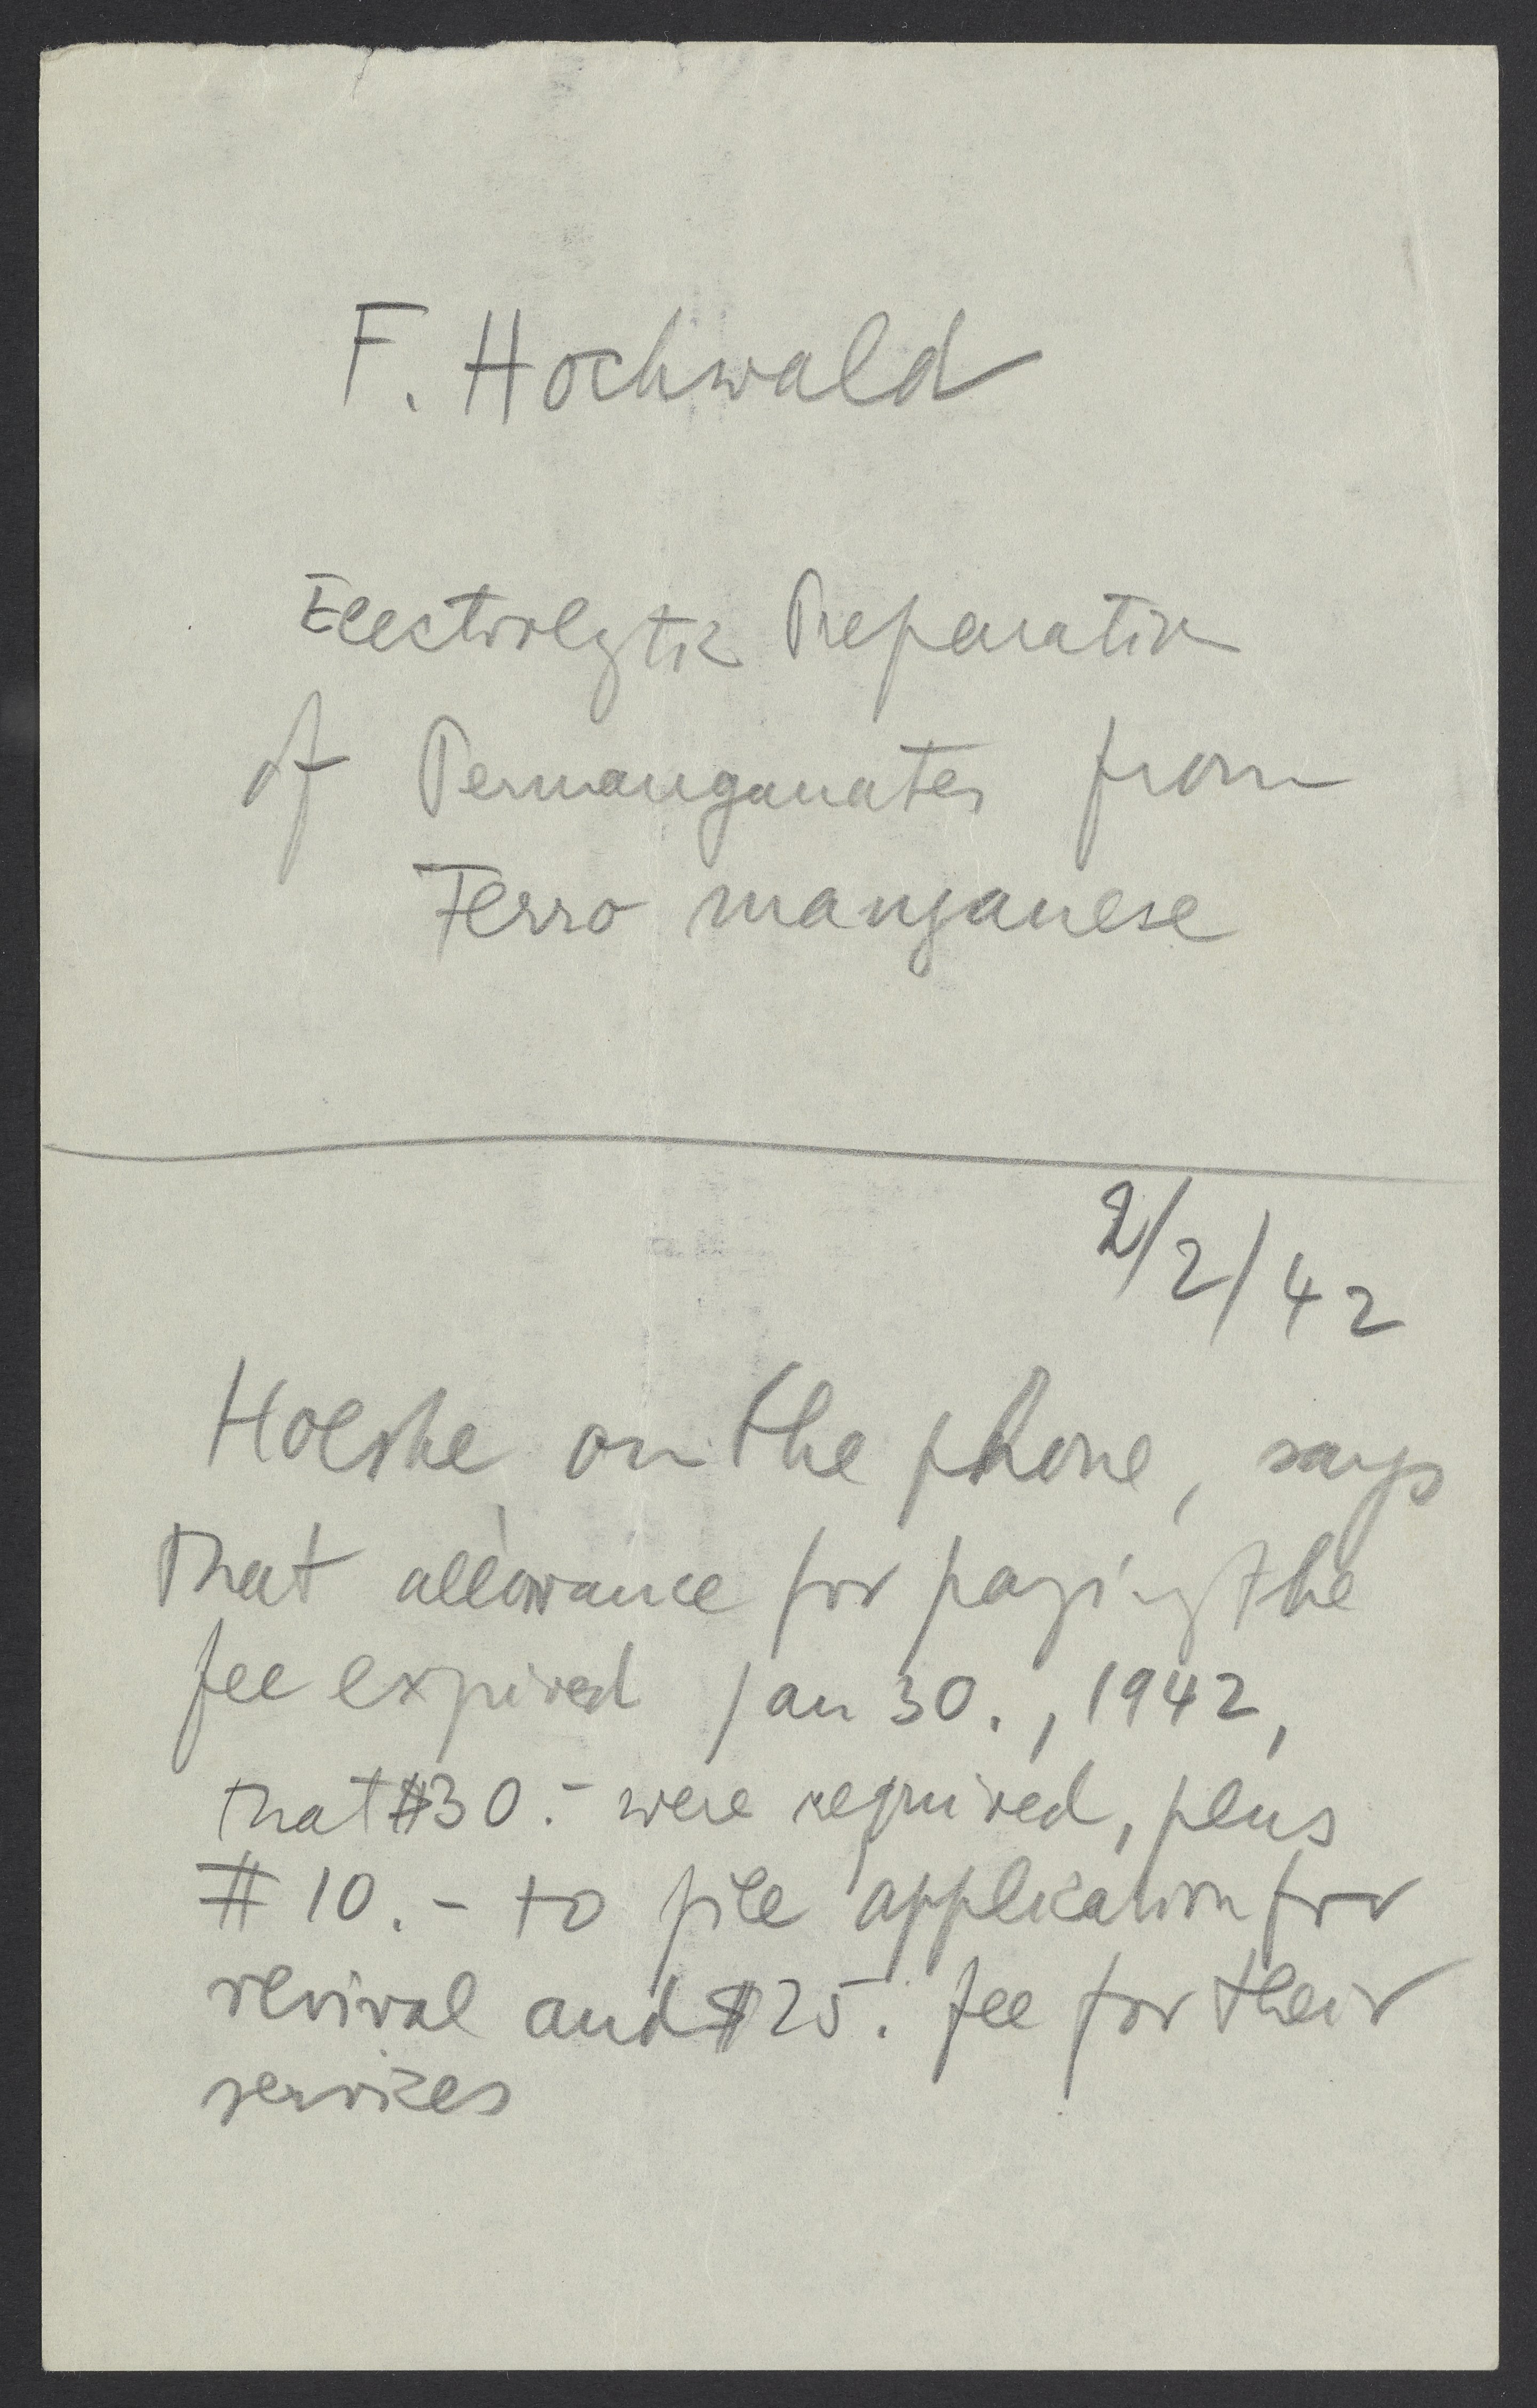 F. Hochwald
Electrolytic Preparation
of Permanganates from
Ferro manganese
2/2/42
on the phone, says
that allowance for paying the
fee expired Jan 30., 1942,
that $30.- were required, plus
$10.- to file application for
revival and $25. fee for their
services